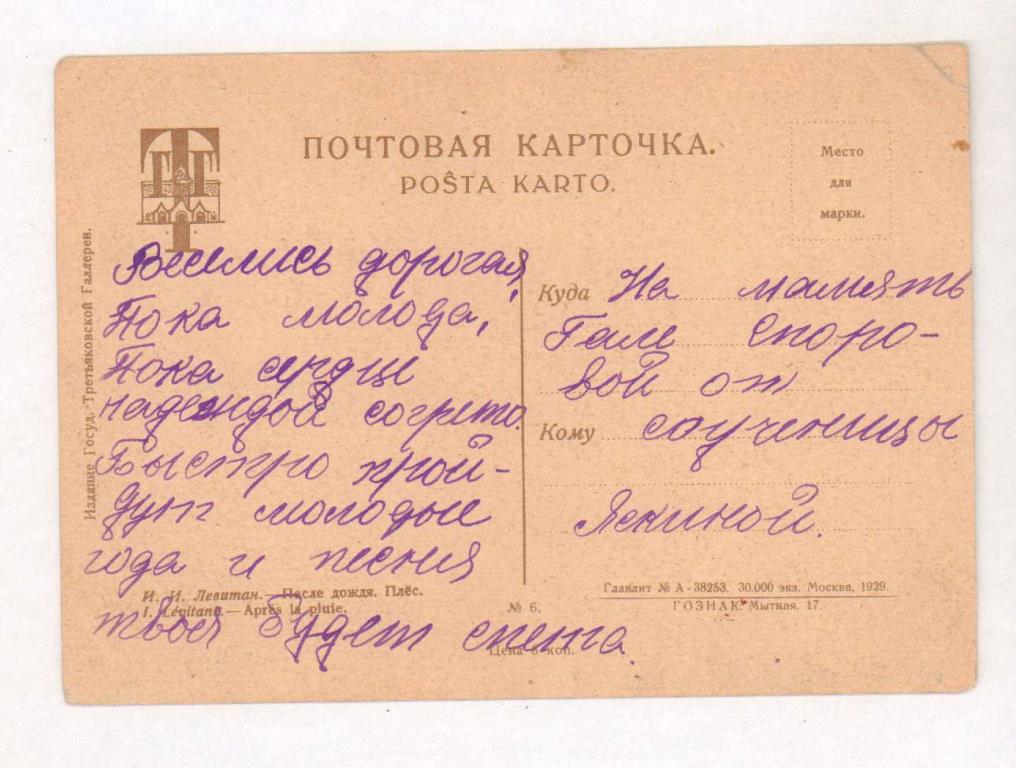 ТГГ
ПОЧТОВАЯ КАРТОЧКА.
POŜTA KARTO.
Место
для
марки.
Издание Госуд. Третьяковской Галлереи.
Веселись дорогая,
Пока молода,
Пока сердце
надеждой согрето.
Быстро прой-
дут молодые
года и песния
твоя будет спета.
Куда На память
Гале Споро-
вой от
Кому соученицы
Яскиной.
И. И. Левитан.—После дождя. Плёс.
I. Lévitane.—Après la pluie.
№ 6.
Цена 8 коп.
Главлит № А-38253. 30.000 экз. Москва, 1929.
ГОЗНАК. Мытная, 17.